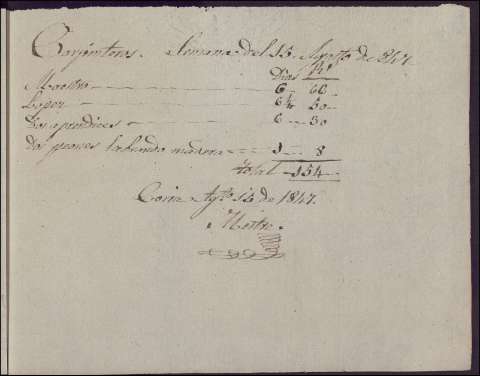 Carpinteros. Semana del 15 Agosto de 1847.
Dias Rs
Maestro 6 60
Lopez 6½ 50
Dos aprendices 6 30
Dos peones labrando madera 1 8
Total 154
Coria Agto 15 de 1847.